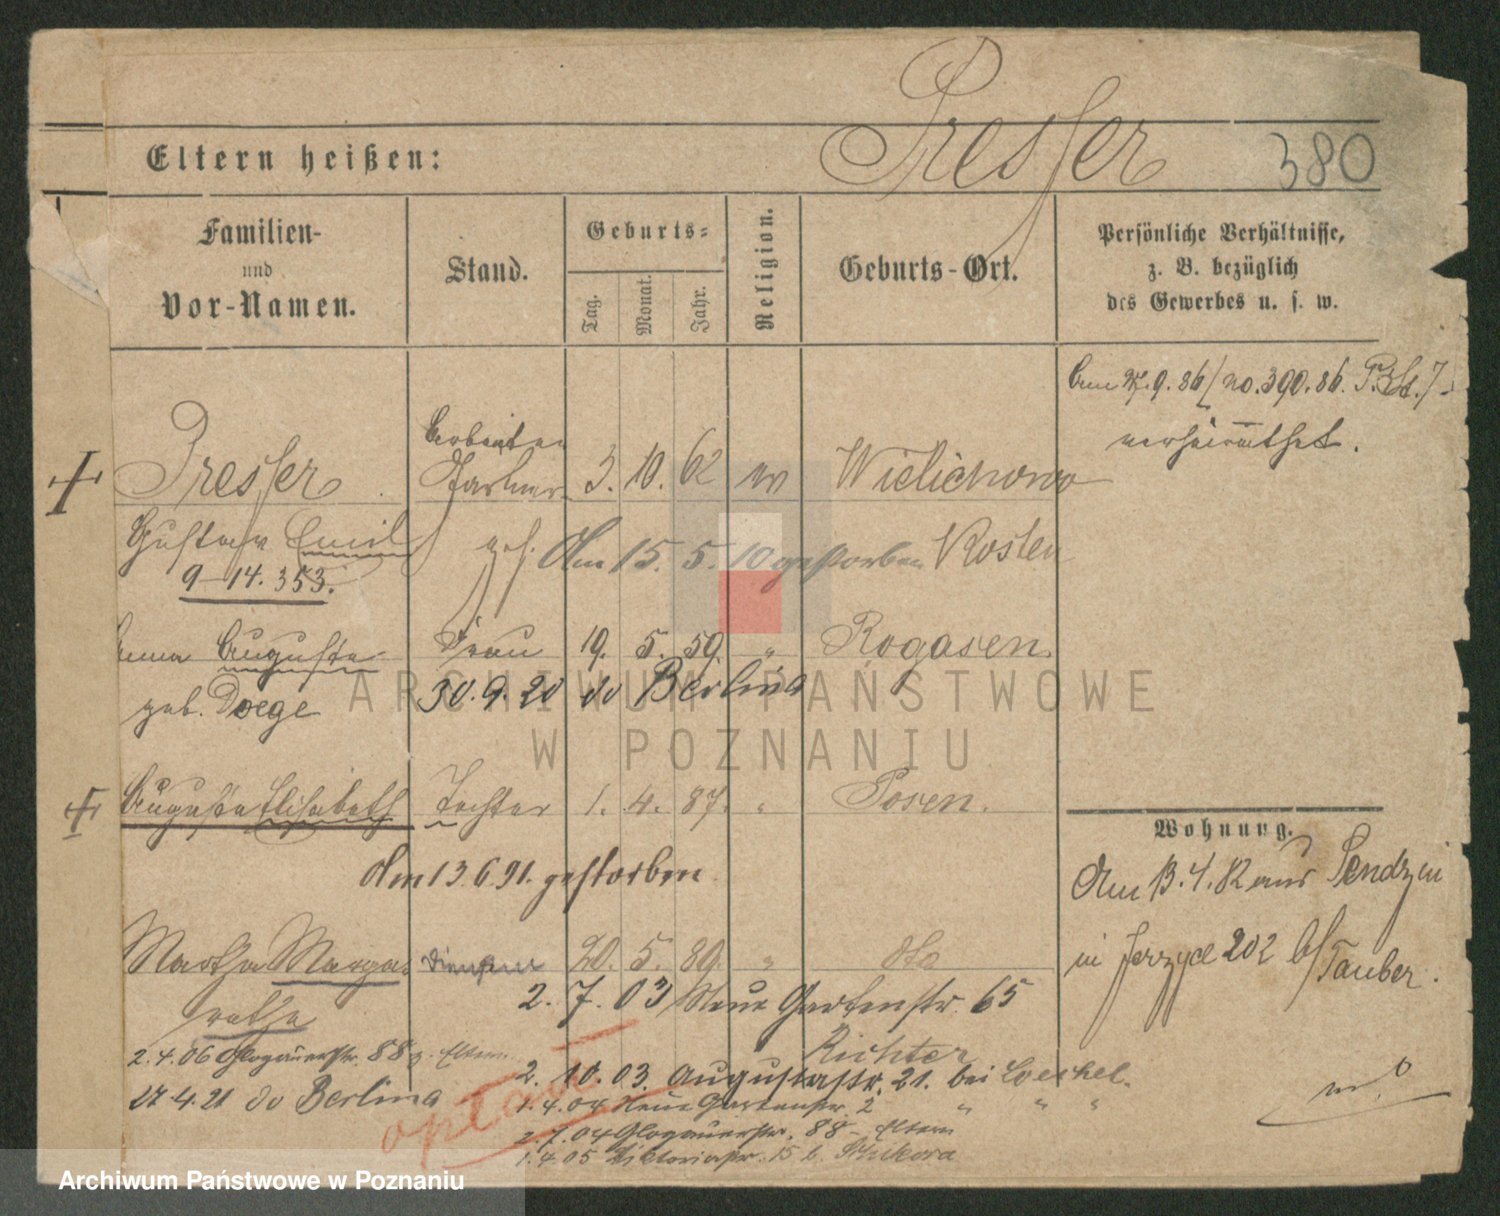 Presser
380
Eltern heißen:
Familien-
und
Vor-Namen.
Stand.
Geburts-
Tag.
Monat.
Jahr.
Religion.
Geburts-Ort.
Persönliche Verhältnisse,
z. B. bezüglich
des Gewerbes u. s. w.
9.86 no. 390.86. P.
verheirathet.
Arbeiter
Presser 3. 10. 62 ev Wielichowo
Gustav Emil gest. Am 15. 5. 10 gestorben Kosten
9-14.353.
Anna Auguste Frau 19. 5. 59. " Rogasen.
geb. Doege 30.9.20 do Berlina
Auguste Elisabeth Tochter 1. 4. 87. " Posen.
Am 13.6.91. gestorben
Martha Marga- 20. 5. 89. " dto
rethe
2. 7. 03 Neue Gartenstr. 65
Richter
2.4.06 Glogauerstr. 88 z. Eltern
2. 10. 03. Augustastr. 21. bei
27.4.21 do Berlina
1.4.04 Neue Gartenstr. 2 " " "
opłać
2.7.04 Glogauerstr. 88 - Eltern
1.4.05 Viktoriastr. 15 b. Sikora
Wohnung.
Am 13.4.82 aus Sendzin
in Jerzyce 202 b/
Tauber.
ARCHIWUM PAŃSTWOWE
W POZNANIU
Archiwum Państwowe w Poznaniu